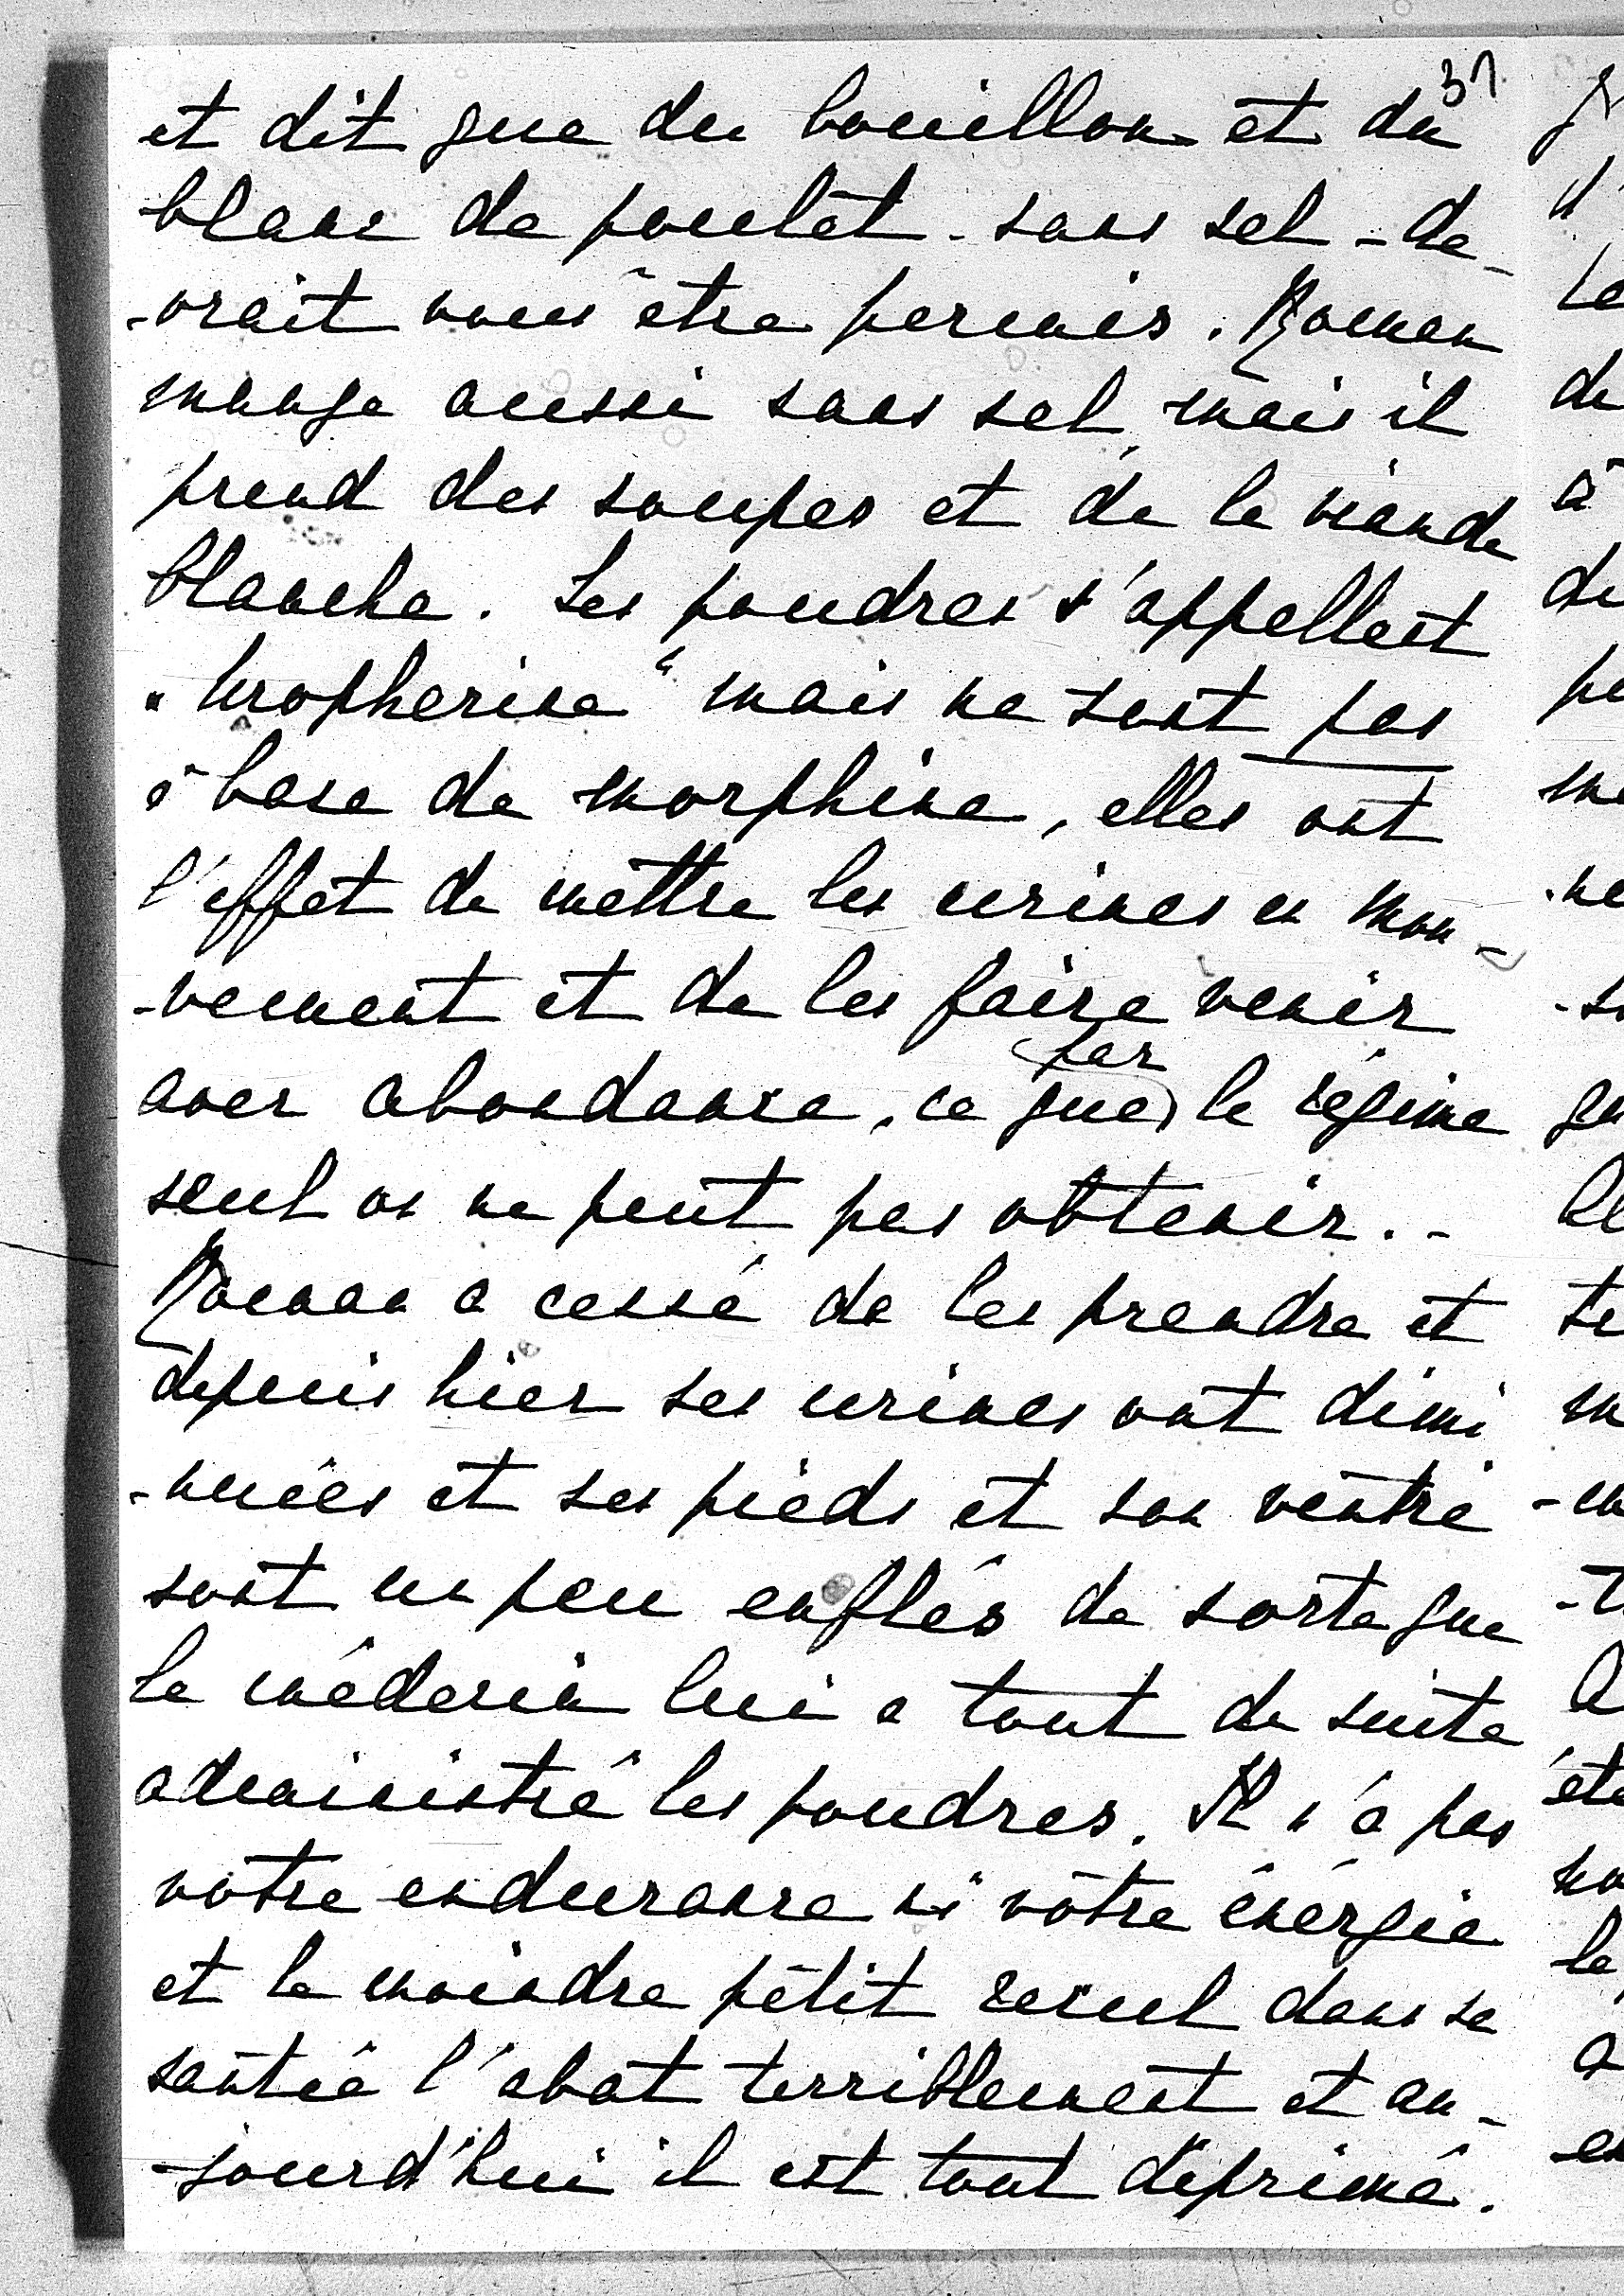 37
et dit que du bouillon et du
blanc de poulet - sans sel - de-
-vrait vous être permis. Roman
mange aussi sans sel, mais il
prend des soupes et de la viande
blanche. Les poudres s'appellent
"Uropherine" mais ne sont pas
à base de morphine, elles ont
l'effet de mettre les urines en mou-
-vement et de les faire venir
avec abondance, ce que par le régime
seul on ne peut pas obtenir. -
Roman a cessé de les prendre et
depuis hier ses urines ont dimi
-nuées et ses pieds et son ventre
sont un peu enflés de sorte que
le médecin lui a tout de suite
administré les poudres. Il n'a pas
votre endurance ni votre énergie
et le moindre petit recul dans sa
santée l'abat terriblement et au-
-jourd'hui il est tout déprimé.